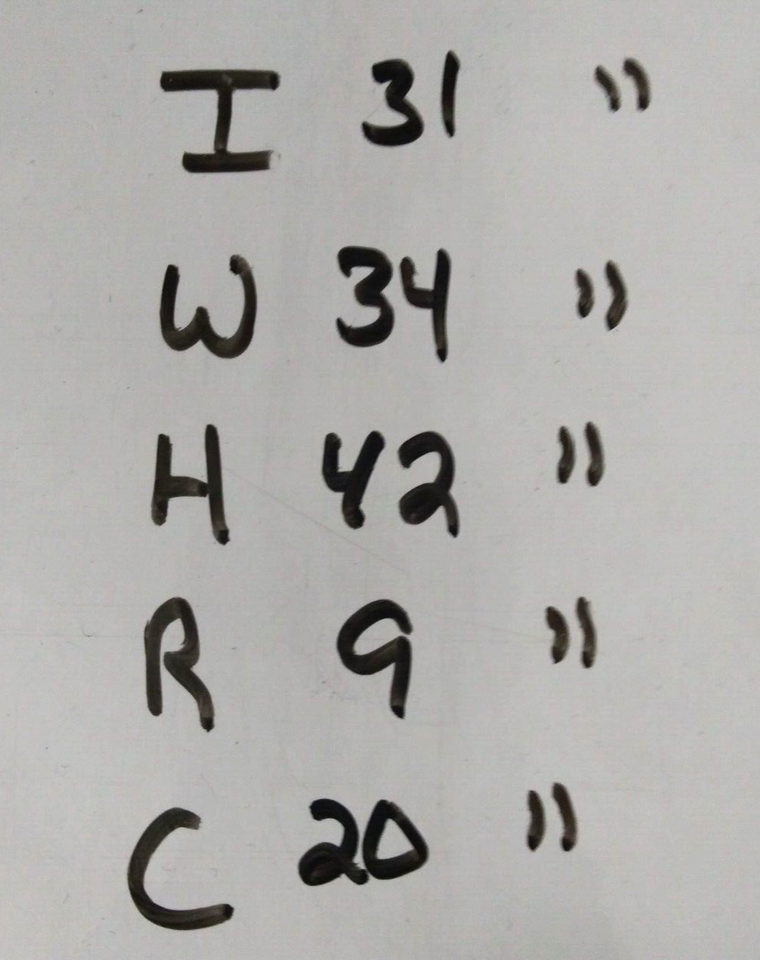 I 31 "
W 34 "
H 42 "
R 9 "
C 20 "